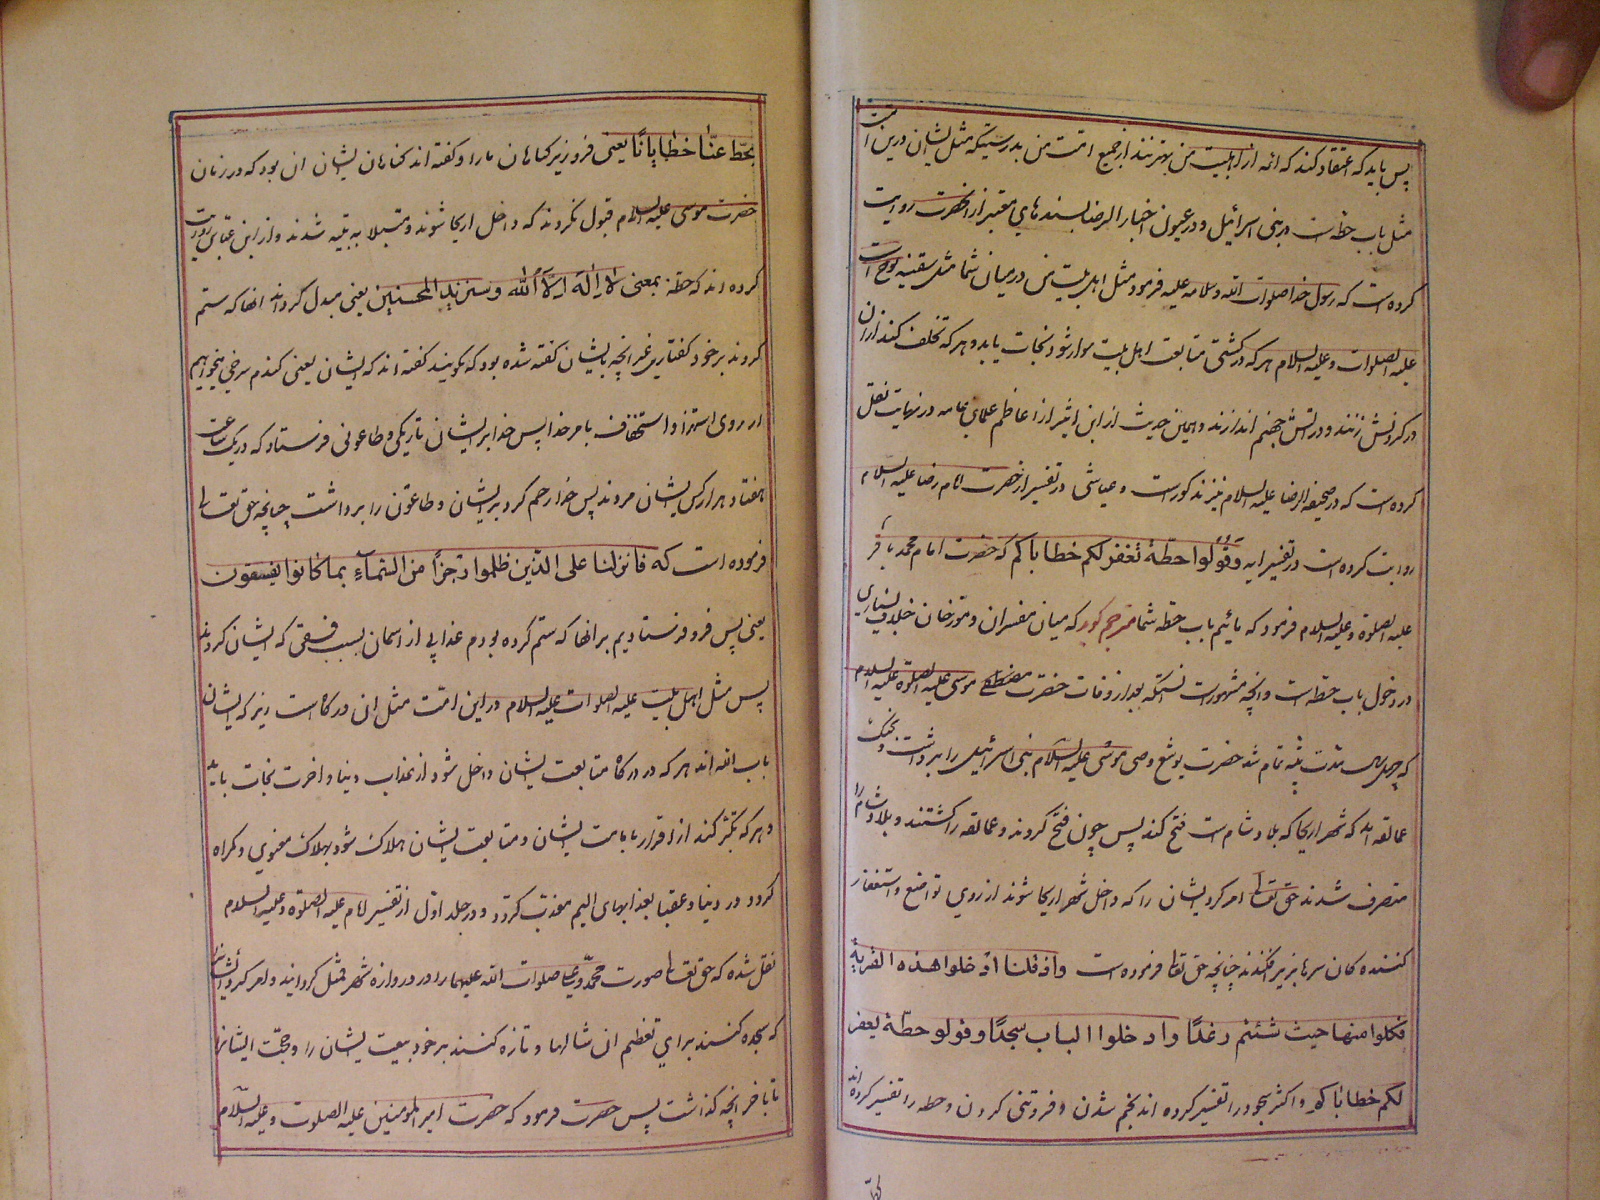 پس باید که اعتقاد کند که ائمه از اهلبیت من بهترند از جمیع امت من بدرستیکه مثل ایشان درین امت
مثل باب حطه است در بنی اسرائیل و در عیون اخبار الرضا بسندهای معتبر از انحضرت روایت
کرده است که رسول خدا صلوات الله وسلامه علیه فرمود مثل اهل بیت من در میان شما مثل سفینه نوح است
علیه الصلوات و علیه السلام هر که در کشتی متابعت اهل بیت سوار شود نجات یابد و هر که تخلف کند از ان
در کردنش زنند و در اتش جهنم اندازند و همین حدیث از ابن اثیر از اعاظم علمای عامه در نهایت نقل
کرده است که در صحیفه الرضا علیه السلام نیز مذکور است و عیاشی در تفسیر از حضرت امام رضا علیه السلام
روایت کرده است در تفسیر ایه وقولوا حطة نغفر لکم خطایاکم که حضرت امام محمد باقر
علیه الصلوة و علیه السلام فرمود که مائیم باب حطه شما مترجم کوید که میان مفسران و مورخان خلاف بسیاری
در دخول باب حطه است و انچه مشهور است انستکه بعد از وفات حضرت موسی علیه الصلوة علیه السلام
که چهل سال مدت تیه تمام شد حضرت یوشع وصی موسی علیه السلام بنی اسرائیل را برداشت و بجنک
عمالقه امد که شهر اریحا که بلاد شام است فتح کند پس چون فتح کردند و عمالقه را کشتند و بلاد شام را
متصرف شدند حق تعالی امر کرد ایشان را که داخل شهر اریحا شوند از روی تواضع و استغفار
کننده کان سرها بزیر افکنند چنانچه حق تعالی فرموده است واذ قلنا ادخلوا هذه القریة
فکلوا منها حیث شئتم رغدًا وادخلوا الباب سجدًا وقولو حطة یغفر
لکم خطایاکم و اکثر سجود را تفسیر کرده اند بخم شدن و فروتنی کردن و حطه را تفسیر کرده اند
بحط عنّا خطایانًا یعنی فرو زیر کناهان ما را و کفته اند کناهان ایشان ان بود که در زمان
حضرت موسی علیه السلام قبول نکردند که داخل اریحا شوند و مبتلا به تیه شدند و از ابن عباس روایت
کرده اند که حطة بمعنی لا إله إلا الله وسنزید المحسنین یعنی مبدل کردند انها که ستم
کردند بر خود کفتاری غیر انچه بایشان کفته شده بود که بکویند کفته اند که ایشان یعنی کندم سرخی میخواهیم
از روی استهزا و استخفاف بامر خدا پس خدا بر ایشان تاریکی و طاعونی فرستاد که در یک ساعت
هفتاد هزار کس ایشان مردند پس خدا رحم کرد بر ایشان و طاعون را برداشت چنانچه حق تعالی
فرموده است که فانزلنا علی الذین ظلموا رجزًا من السماء بما کانوا یفسقون
یعنی پس فرو فرستادیم بر انها که ستم کرده بودم عذابی از اسمان بسبب فسقی که ایشان کردند
پس مثل اهل بیت علیه الصلوات علیه السلام در این امت مثل ان درکاه است زیر که ایشان
باب الله اند هر که در درکاه متابعت ایشان داخل شود از عذاب دنیا و اخرت نجات یابد
و هر که تکبّر کند از اقرار بامامت ایشان و متابعت ایشان هلاک شود بهلاک معنوی و کمراه
کردد در دنیا و عقبا بعذابهای الیم معذب کردد و در جلد اول از تفسیر امام علیه الصلوة و علیه السلام
نقل شده که حق تعالی صورت محمّد و علی صلوات الله علیهما را در دروازه شهر ممثل کردانید و امر کرد ایشان
که سجده کنند برای تعظیم ان مثالها و تازه کنند بر خود بیعت ایشان را و حجّت ایشانرا
تا باخر انچه کذاشت پس حضرت فرمود که حضرت امیر المومنین علیه الصلوت و علیه السلام